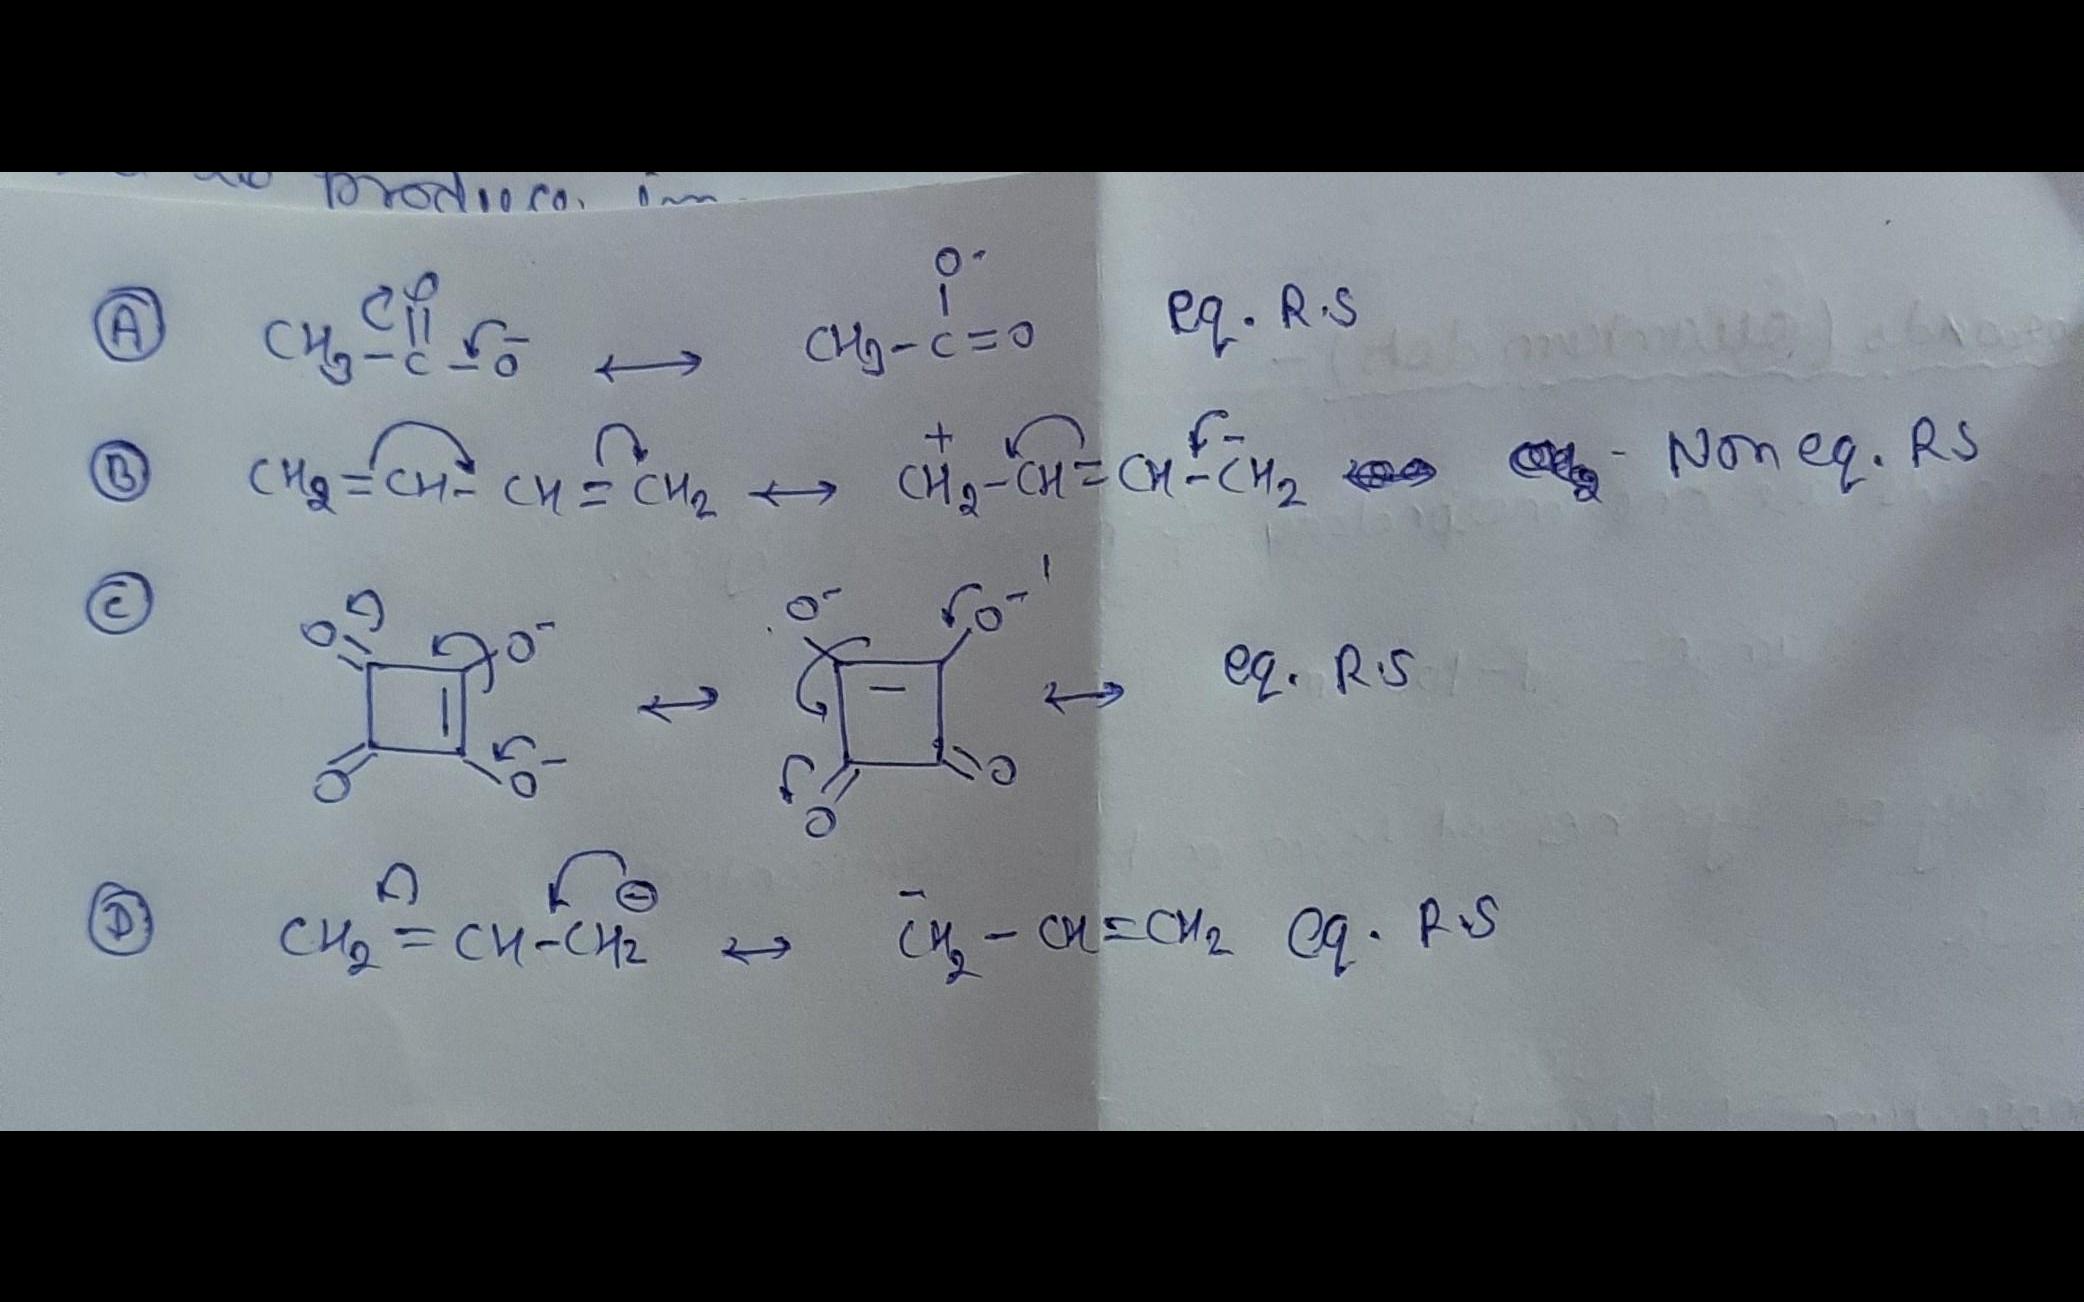 produce in
(A) CH3-C-O⁻ ↔ CH3-C=O eq. R.S
O O⁻
(B) CH2=CH-CH=CH2 ↔ CH2⁺-CH=CH-C⁻H2 ↔ Non eq. RS
(C) O O⁻ O O⁻ ↔ O⁻ O⁻ O O ↔ eq. R.S
(D) CH2=CH-CH2⊖ ↔ C⁻H2-CH=CH2 eq. R.S